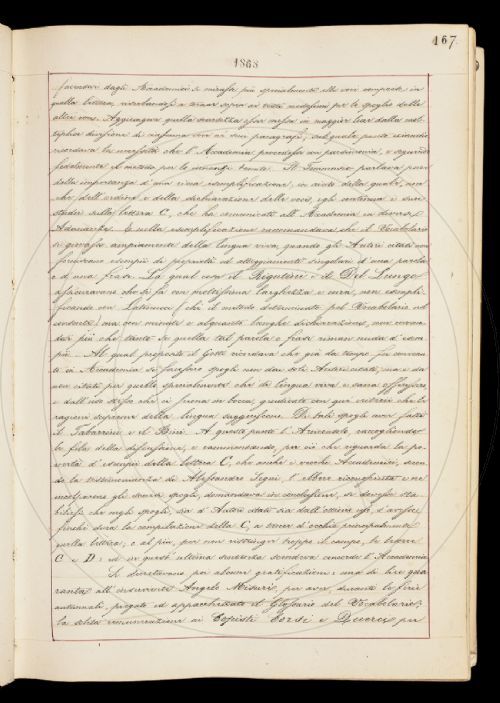 167.
1868
facendosi dagli Accademici si mirasse più specialmente alle voci comprese in
quella lettera, riserbandosi a tornar sopra ai testi medesimi per lo spoglio delle
altre voci. Aggiungeva quella esser messa in maggior luce dalla
divisione di ciascuna voce in suoi paragrafi; sul quale punto
ricordava che l'Accademia procedesse con parsimonia, e seguendo
fedelmente il metodo per lo innanzi tenuto. Il Tommaseo parlava poi
della importanza d'una ricca esemplificazione, in vista della quale, non
che dell'ordine e della dichiarazione delle voci, egli continua i suoi
studi sulla lettera C, che ha comunicati all'Accademia in diverse
Adunanze. E nella esemplificazione raccomandava che il Vocabolario
si giovasse ampiamente della lingua viva, quando gli Autori citati non
fornissero esempi di proprietà ed atteggiamenti singolari d'una parola
e d'una frase. La qual cosa il Rigutini e il Del Lungo
assicuravano che si fa con moltissima larghezza e cura, non
con l'attenersi (chè il metodo determinato pel Vocabolario nol
consente) ma con minute e alquanto lunghe dichiarazioni, non
più che tanto se quella tal parola o frase riman nuda d'esem
pio. Al qual proposito il Giotti ricordava che già da tempo fu convenu
to in Accademia di fare spogli non da soli Autori citati, ma
per quello specialmente che di lingua viva e sana offrissero,
e dall'uso stesso che ci suona in bocca, giudicato con quei criterii che le
ragioni superiori della lingua suggeriscono. Di tali spogli aver fatti
il Tabarrini e il Bini. A questo punto l'Arciconsolo raccogliendo
le fila della discussione, e rammentando, per ciò che riguarda la po
vertà d'esempi della lettera C, che anche i vecchi Accademici, secon
do la testimonianza di Alessandro Segni, l'ebbero riconosciuta e ne
incolparono gli scarsi spogli, domandava in conclusione, se dovesse sta
bilirsi che negli spogli, sia d'Autori citati sia dall'odierno uso, s'avesse,
finchè dura la compilazione della C, a tener d'occhio principalmente
quella lettera; o al più, per non restringer troppo il campo, le lettere
C e D: ed in questa ultima sentenza sembrava concorde l'Accademia.
Si decretavano poi alcune gratificazioni: una di lire qua
ranta all'inserviente Angelo Misuri, per aver, durante le ferie
autunnali, piegato ed apparecchiato il Glossario del Vocabolario;
la solita remunerazione ai Copisti Corsi e Ducci per